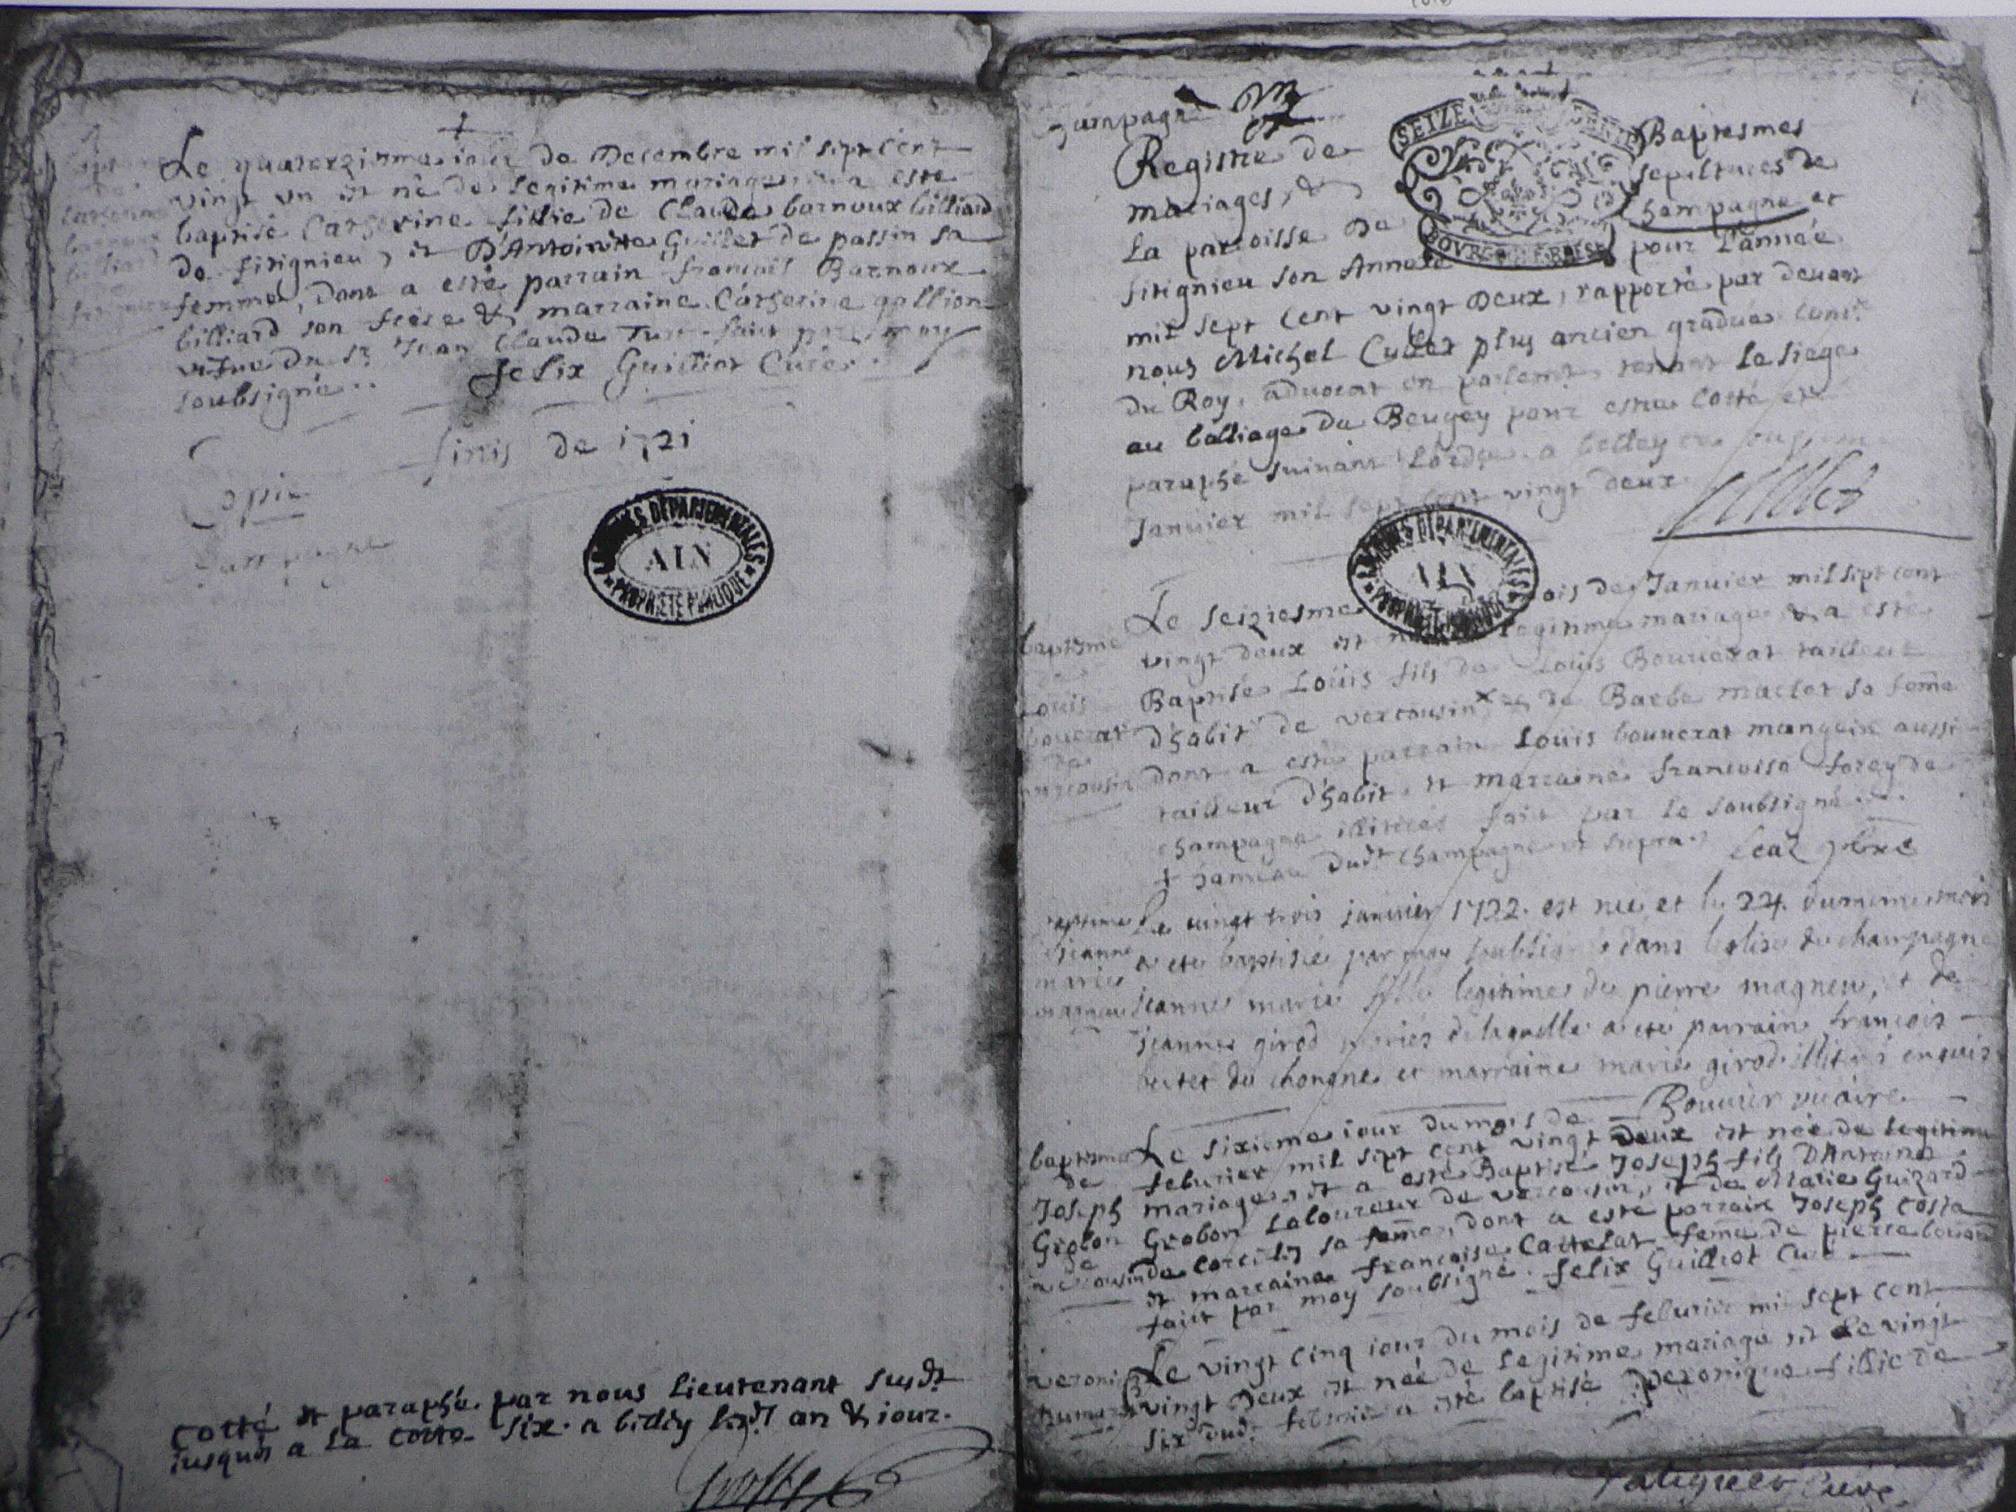 Le quatorziesme jour de Decembre mil sept cent
vingt un est né de legitime mariage, et a esté
baptisé Catherine fillie de Claude barnoux billiard
de fitignieu, et D'Antoinette Guillet de passin sa
femme, dont a esté parrain francois Barnoux
billiard son frere & marraine Catherine gallion
vefve du Sr Jean Claude fait par moy
soubsigné..
felix Guilliot Curé.
finis de 1721
Copie
Champagne
ARCHIVES DÉPARTEMENTALES
AIN
PROPRIÉTÉ PUBLIQUE
Cotté et paraphé par nous Lieutenant susdt
jusques a la cotte six. a billey lesdt an & iour.
Champagne
SEIZE
BOVRG EN BRESSE
Registre de Baptesmes
mariages, & sepultures de
La parroisse De Champagne et
fitignieu son Annexe pour L'année
mil sept Cent vingt Deux, rapporté par devant
nous Michel Cullet plus ancien gradué Conser
du Roy, advocat en parlement tenant le siege
au balliage du Beugey pour estre Cotté et
paraphé suivant L'ordre a belley ce
Janvier mil sept cent vingt deux
Cullet
ARCHIVES DÉPARTEMENTALES
AIN
PROPRIÉTÉ PUBLIQUE
baptesme
de
Louis
bouvrat
de
vercousin
Le seiziesme mois de Janvier mil sept cent
vingt deux est né legitime mariage & a esté
Baptisé Loüis fils de Loüis Bouverat tailleur
d'habit de vercousin x et de Barbe maclet sa feme
dont a esté parrain Louis bouverat mangein aussi
tailleur d'habit et marraine francoise forey de
champagne illiterés fait par le soubsigné
x hameau dudt champagne ut supra
baptesme
de jeanne
marie
magneu
Le vingt trois janvier 1722. est née et le 24. du meme mois
a eté baptisée par moy soubsigné dans leglise de champagne
jeanne marie fille legitime de pierre magneu, et de
jeanne girod mariés de laquelle a eté parrain francois
du chongne et marraine marie girod illiterés enquis
Bouvier vicaire
baptesme
de
Joseph
Grobon
de
vercousin
Le sixieme iour du mois de
febvrier mil sept cent vingt deux est née de legitime
mariage, et a esté Baptisé Joseph fils D'Antoine
Grobon Laboureux de vercousin, et de Marie Guizard
de sa feme, dont a esté parrain Joseph Costa
et marraine francoise Cattelat feme de pierre
fait par moy soubsigné. felix Guilliot Curé
veronique
Le vingt cinq iour du mois de febvrier mil sept cent
vingt deux est née de legitime mariage et le vingt
six dudt febvrier a esté baptisé veronique fillie de